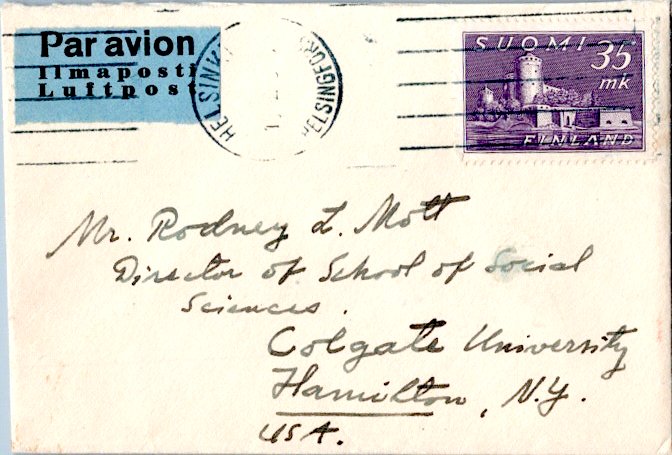 Par avion
Ilmaposti
Luftpost
HELSINKI
HELSINGFORS
SUOMI 35
mk
FINLAND
Mr. Rodney L. Mott
Director of School of Social
Sciences.
Colgate University
Hamilton, N.Y.
USA.